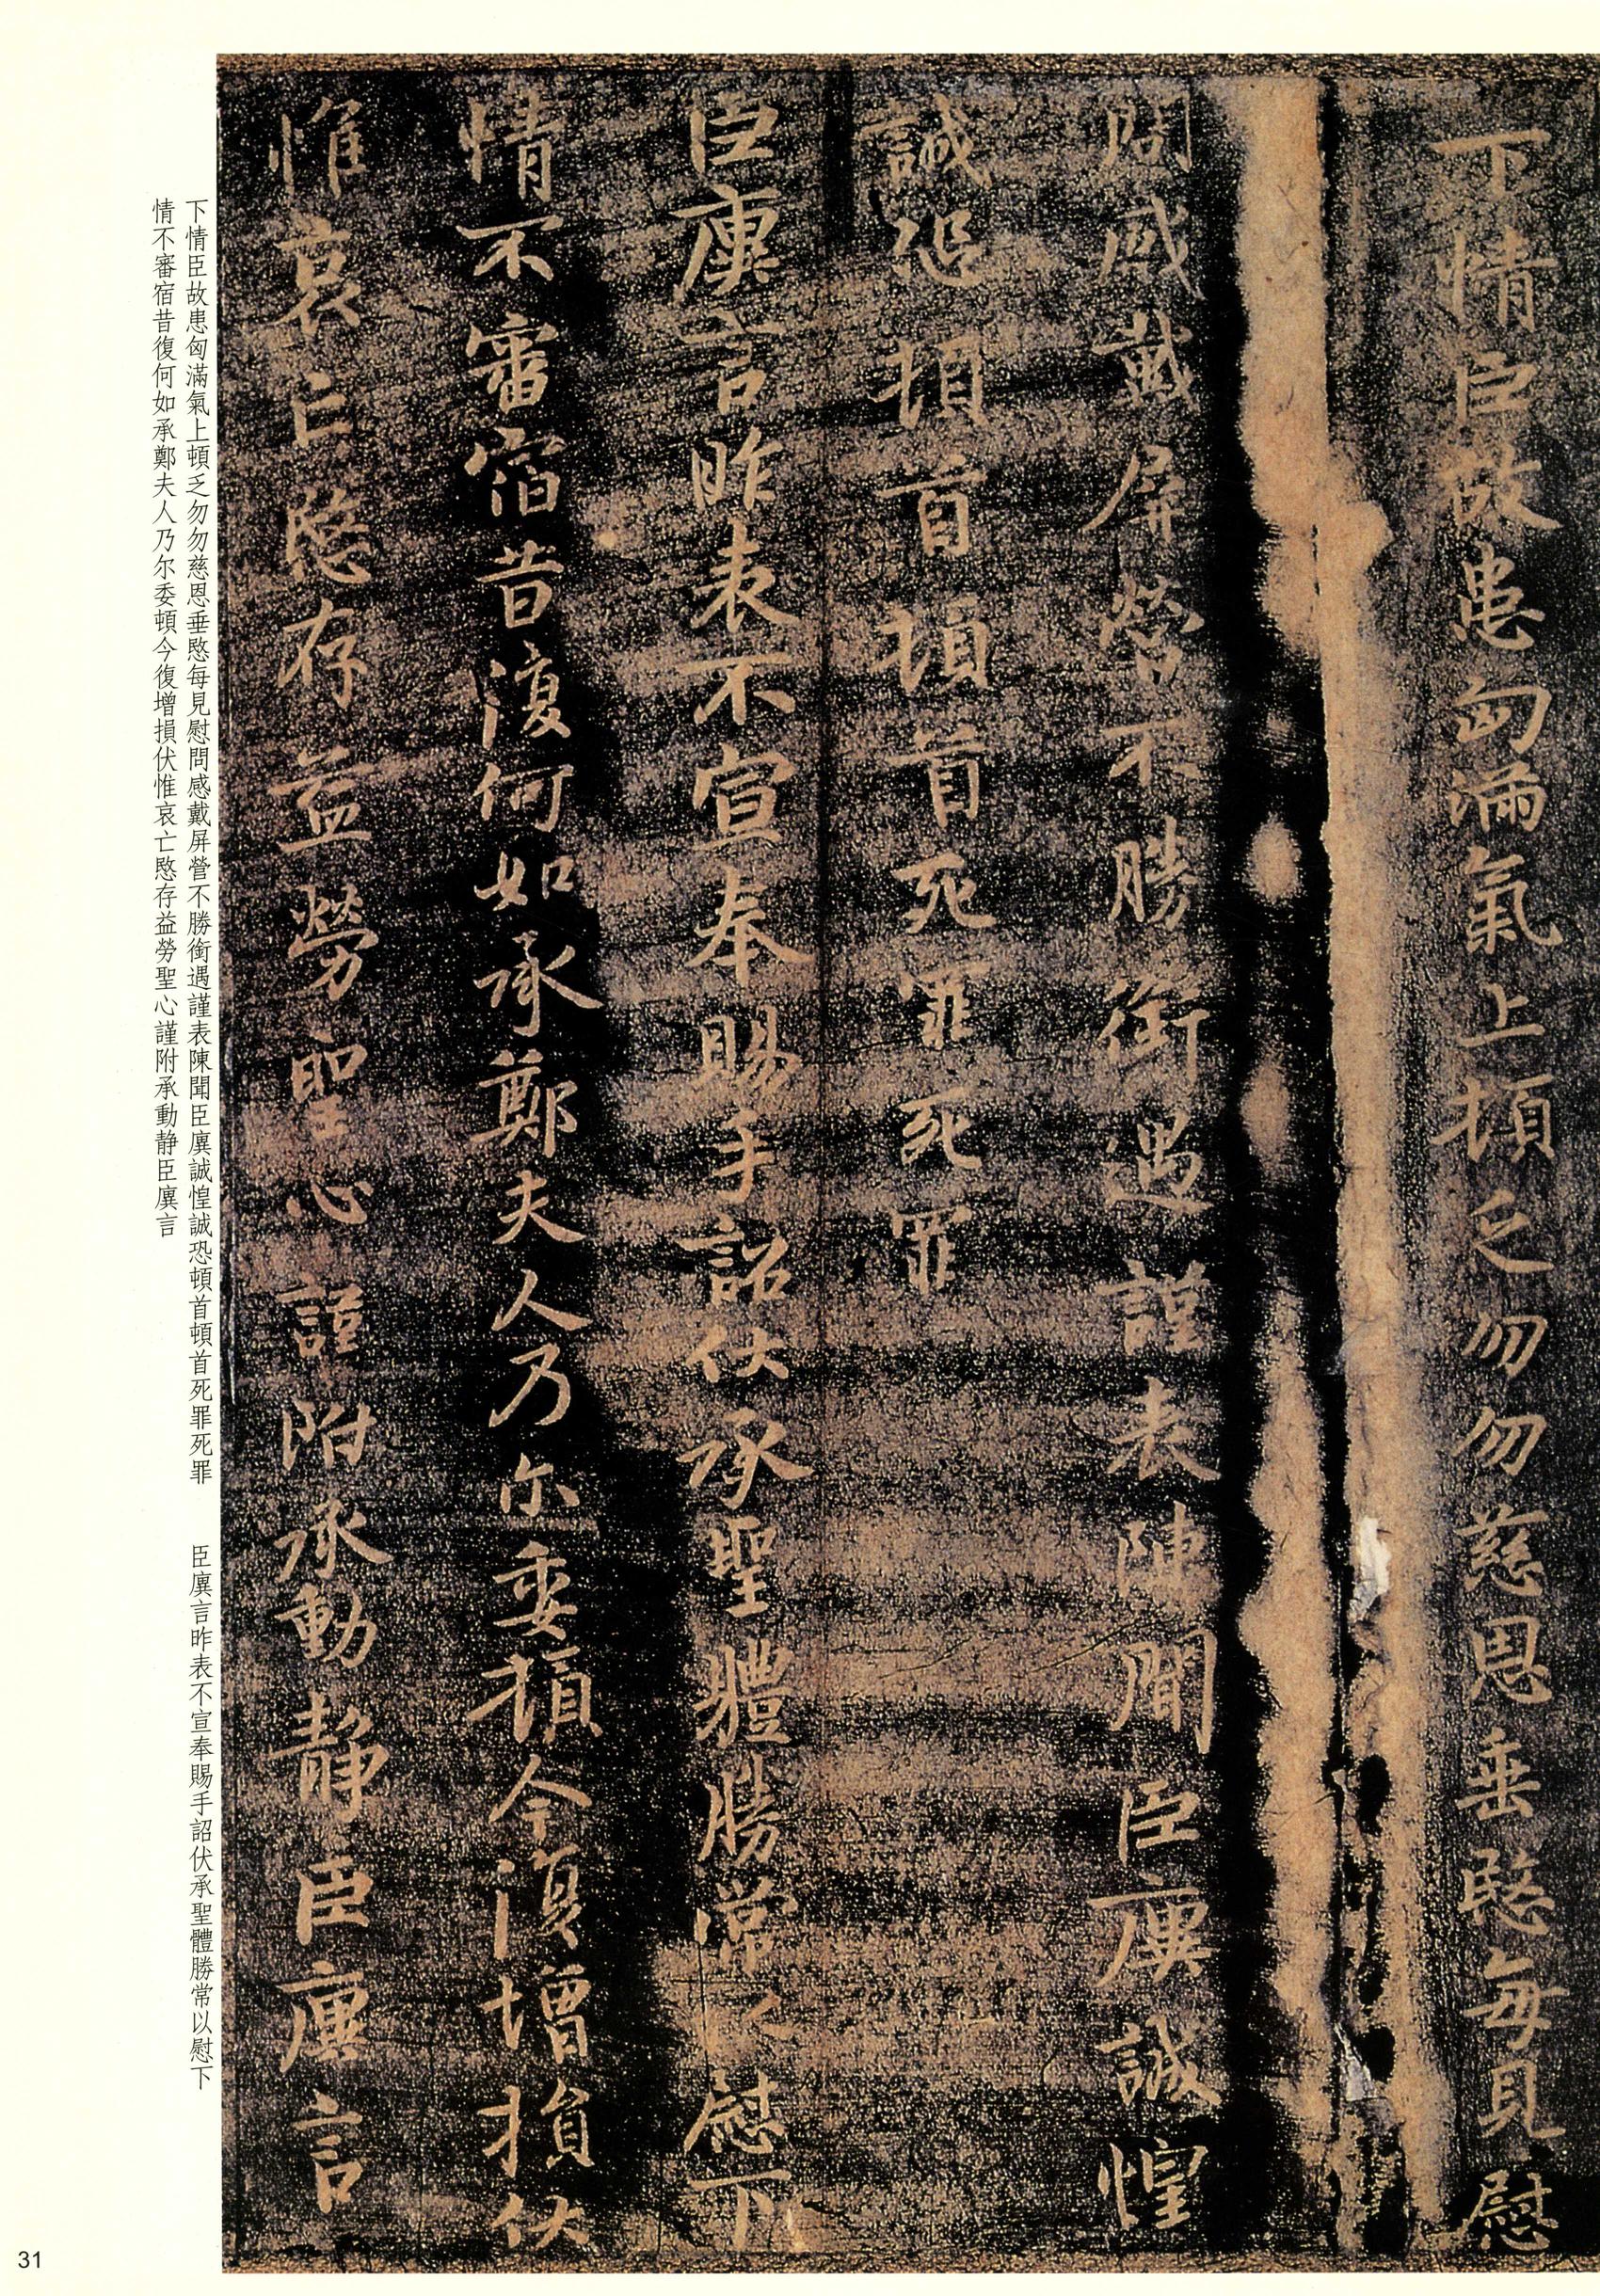 下情臣故患匈滿氣上頓乏勿勿慈恩垂愍每見慰
問感戴屏營不勝銜遇謹表陳聞臣廙誠惶
誠恐頓首頓首死罪死罪
臣廙言昨表不宣奉賜手詔伏承聖體勝常以慰下
情不審宿昔復何如承鄭夫人乃尔委頓今復增損伏
惟哀亡愍存益勞聖心謹附承動靜臣廙言
下情臣故患匈滿氣上頓乏勿勿慈恩垂愍每見慰問感戴屏營不勝銜遇謹表陳聞臣廙誠惶誠恐頓首頓首死罪死罪　臣廙言昨表不宣奉賜手詔伏承聖體勝常以慰下
情不審宿昔復何如承鄭夫人乃尔委頓今復增損伏惟哀亡愍存益勞聖心謹附承動静臣廙言
31